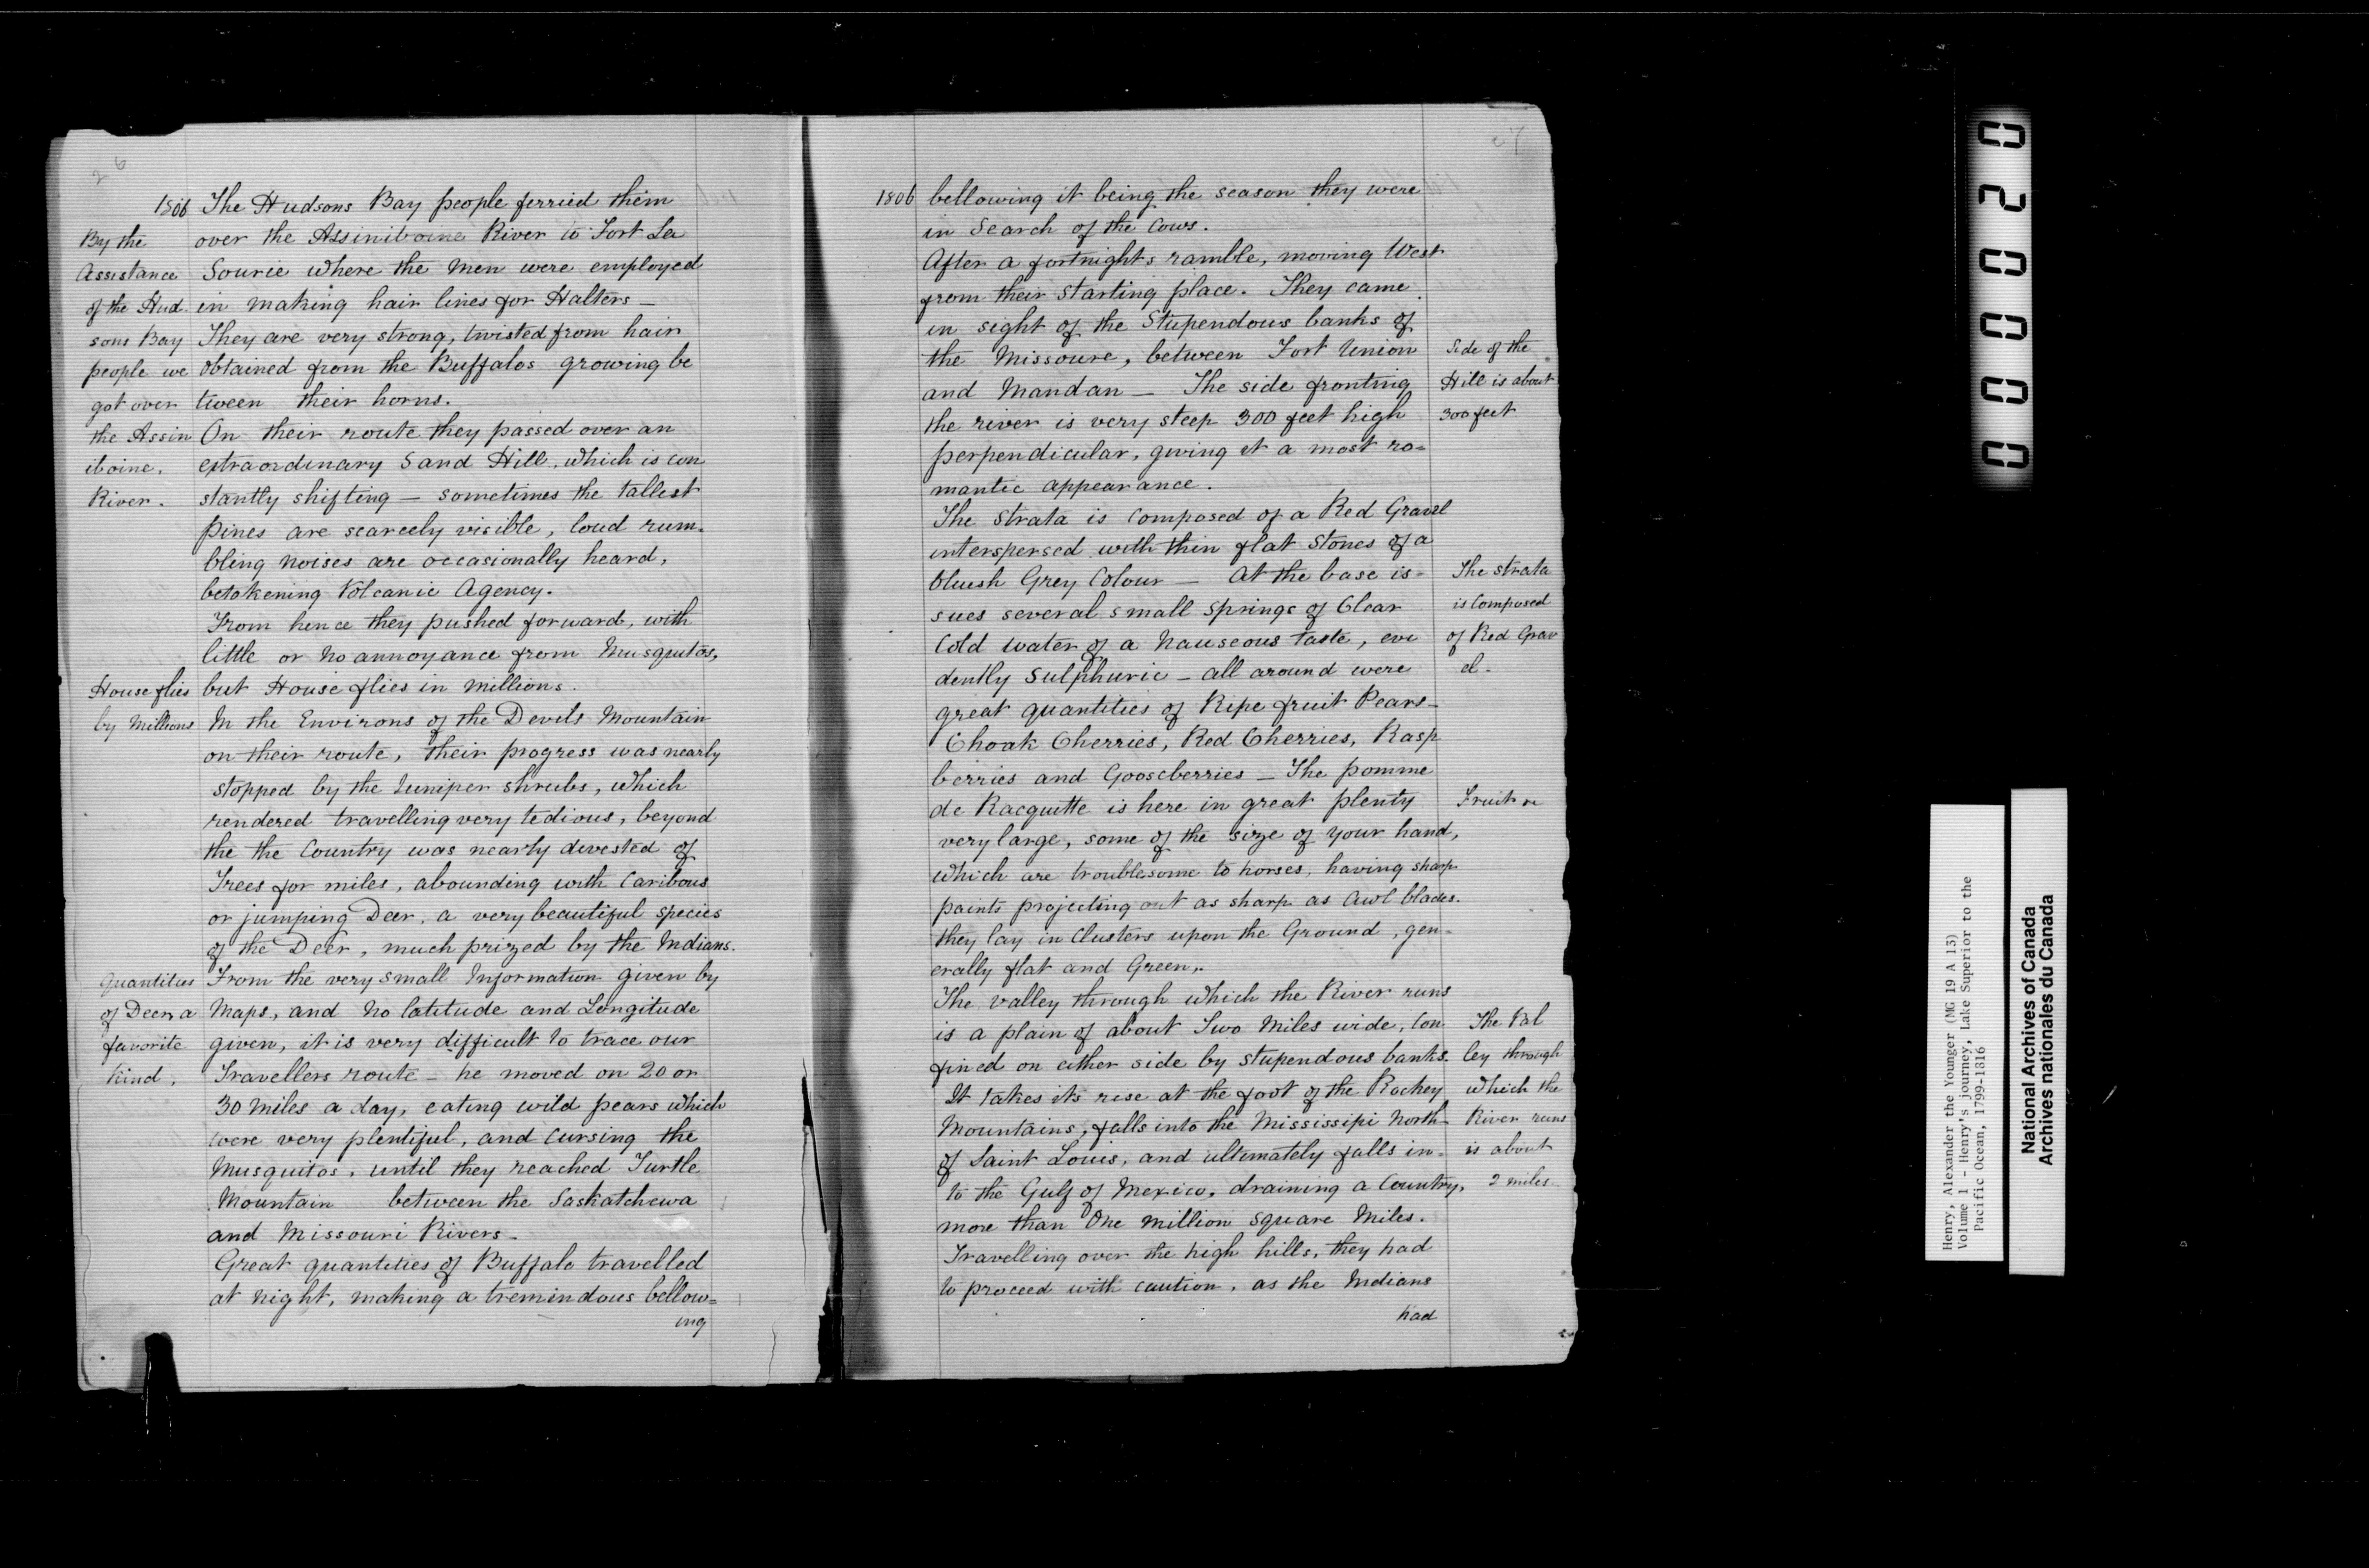 26
1806
By the
Assistance
of the Hud
sons Bay
people we
got over
the Assin
iboine.
River.
House flies
by Millions
Quantities
of Deer, a
favorite
kind.
The Hudsons Bay people ferried them
over the Assiniboine River to Fort La
Sourie where the men were employed
in making hair lines for Halters —
They are very strong, twisted from hair
obtained from the Buffalos growing be
tween their horns.
On their route they passed over an
extraordinary Sand Hill, which is con
stantly shifting — sometimes the tallest
Pines are scarcely visible, loud rum-
bling noises are occasionally heard,
betokening Volcanic Agency.
From hence they pushed forward, with
little or no annoyance from Musquitos,
but House flies in millions.
In the Environs of the Devils Mountain
on their route, their progress was nearly
stopped by the Juniper shrubs, which
rendered travelling very tedious, beyond
the the Country was nearly devested of
Trees for miles, abounding with Caribous
or jumping Deer, a very beautiful species
of the Deer, much prized by the Indians.
From the very small Information given by
Maps, and no latitude and Longitude
given, it is very difficult to trace our
Travellers route — he moved on 20 or
30 miles a day, eating wild pears which
were very plentiful, and cursing the
Musquitos, until they reached Turtle
Mountain between the Saskatchewa
and Missouri Rivers —
Great quantities of Buffalo travelled
at night, making a tremindous bellow=
ing
27
1806
bellowing it being the season they were
in Search of the Cows.
After a fortnights ramble, moving West
from their starting place. They came
in sight of the Stupendous banks of
the Missoure, between Fort Union
and Mandan — The side fronting
the river is very steep 300 feet high
perpendicular, giving it a most ro=
mantic appearance.
The Strata is composed of a Red Gravel
interspersed with thin flat Stones of a
bluish Grey Colour — At the base is-
sues several small springs of Clear
Cold water of a Nauseous taste, evi
dently Sulphuric — all around were
great quantities of Ripe fruit Pears —
Choak Cherries, Red Cherries, Rasp
berries and Gooseberries — The pomme
de Racquitte is here in great plenty
very large, some of the size of your hand,
which are troublesome to horses, having sharp
points projecting out as sharp as Awl blades.
they lay in Clusters upon the Ground, gen-
erally flat and Green,.
The Valley through which the River runs
is a plain of about Two Miles wide, Con
fined on either side by stupendous banks.
It takes its rise at the foot of the Rockey
Mountains, falls into the Mississipi North
of Saint Louis, and ultimately falls in-
to the Gulf of Mexico, draining a Country,
more than One million square Miles.
Travelling over the high hills, they had
to proceed with caution, as the Indians
had
Side of the
Hill is about
300 feet
The strata
is Composed
of Red Grav
el -
Fruit
The Val
ley through
which the
River runs
is about
2 miles
000020
Henry, Alexander the Younger (MG 19 A 13)
Volume 1 - Henry's journey, Lake Superior to the
Pacific Ocean, 1799-1816
National Archives of Canada
Archives nationales du Canada